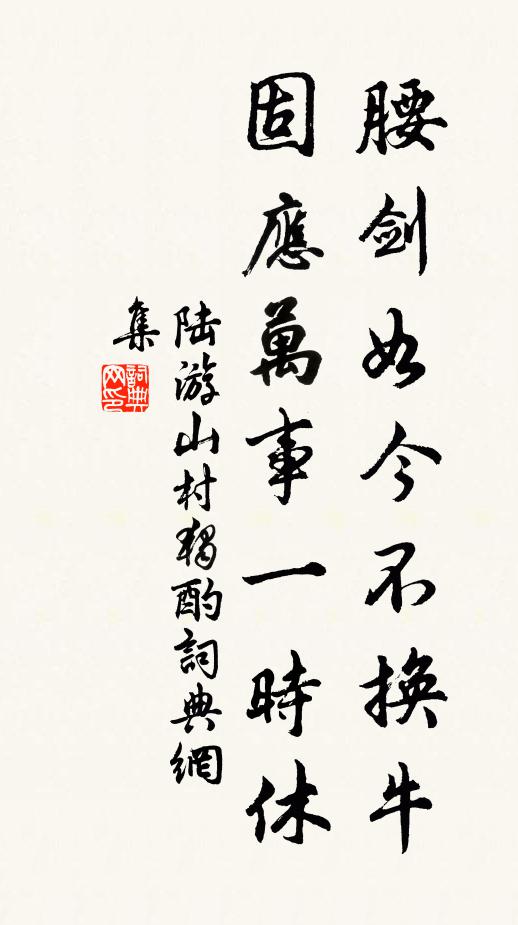 腰劍如今不換牛
固應萬事一時休
陆游山村獨酌詞典網
集
詞典網印